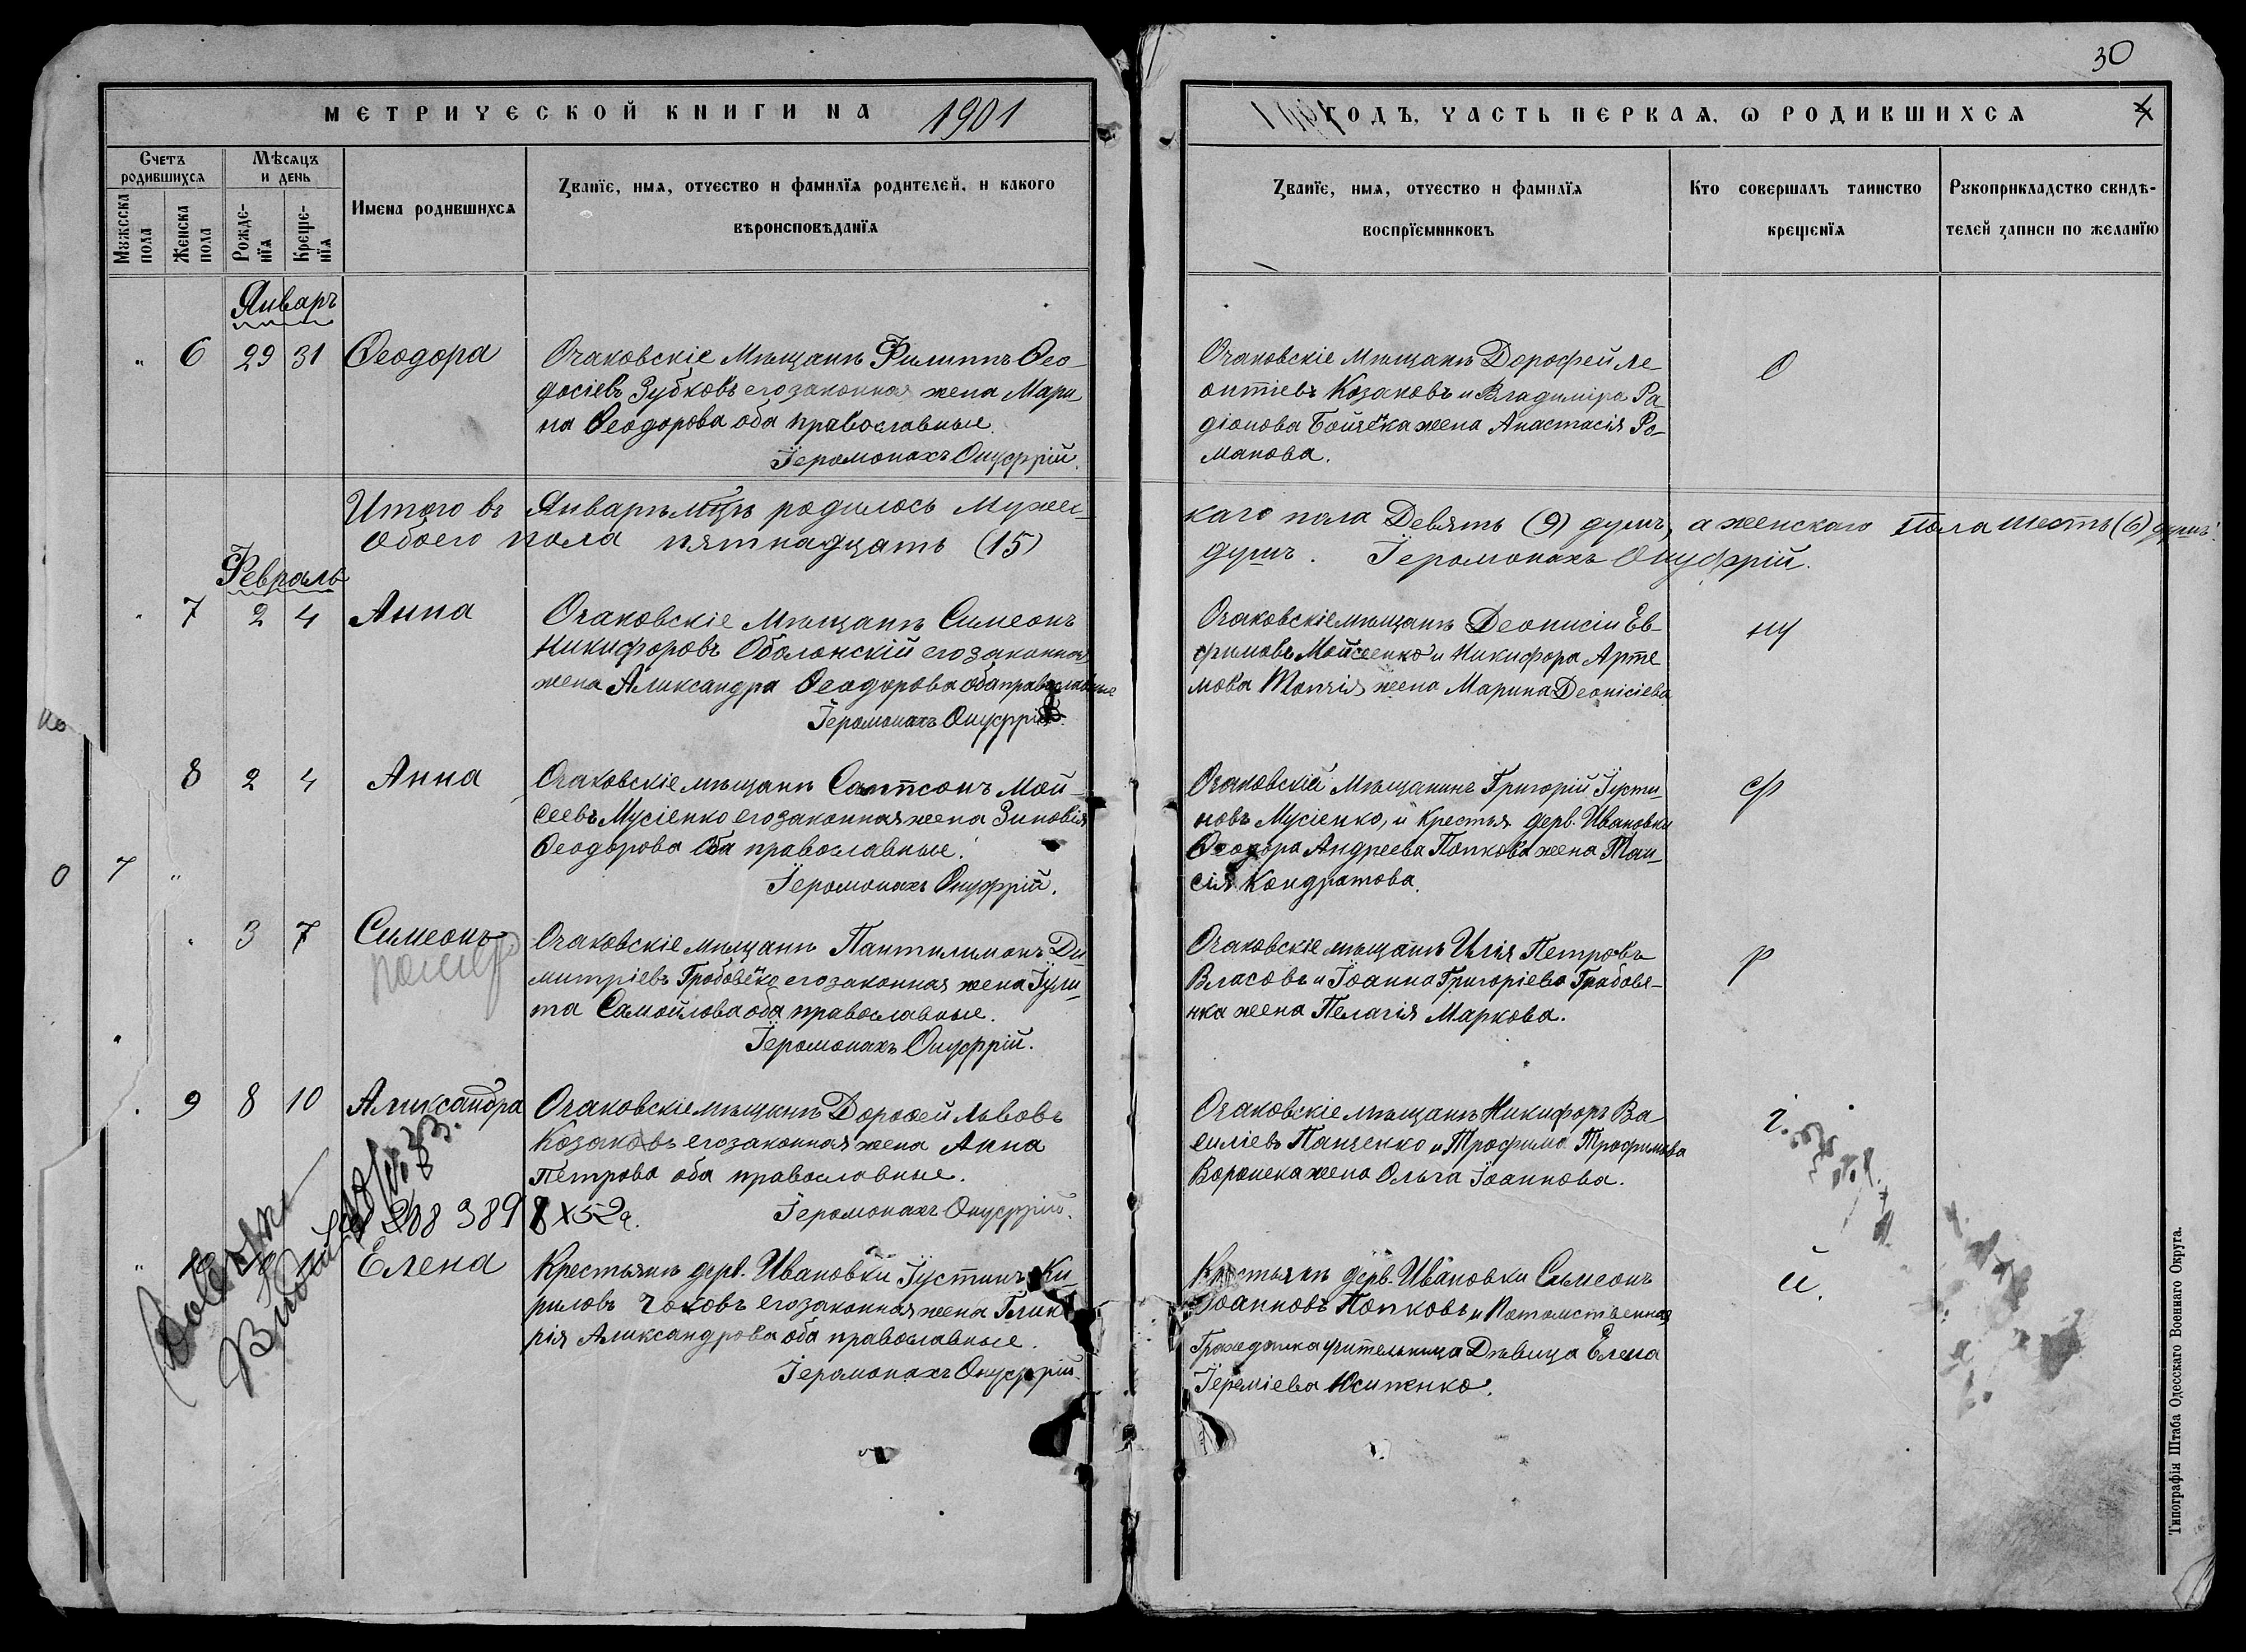 30
МЕТРИЧЕСКОЙ КНИГИ НА 1901
ГОДЪ, ЧАСТЬ ПЕРВАЯ, Ѡ РОДИВШИХСЯ
4
Счетъ родившихся
Мѣсяцъ и день
Мужеска пола
Женска пола
Рожденїя
Крещенїя
Имена родившихся
Званїе, имя, отчество и фамилїя родителей, и какого
вѣроисповѣданїя
Званїе, имя, отчество и фамилїя
воспрїемниковъ
Кто совершалъ таинство
крещенїя
Рукоприкладство свидѣ-
телей записи по желанїю
Январь
" 6 29 31 Ѳеодора
Очаковскіе мѣщане Филиппъ Ѳео-
досіевъ Зубковъ его законная жена Мари-
на Ѳеодорова оба православные.
Іеромонахъ Онуфрій.
Очаковскіе мѣщане Дорофей Ле-
онтіевъ Козаковъ и Владиміра Ра-
діонова жена Анастасія Ро-
манова.
О
Итого въ Январѣ мцѣ родилось мужес-
каго пола Девять (9) душъ, а женскаго пола шесть (6) душъ.
обоего пола пятнадцать (15)
душъ. Іеромонахъ Онуфрій.
Февраль
" 7 2 4 Анна
Очаковскіе мѣщане Симеонъ
Никифоровъ Оболонскій его законная
жена Александра Ѳеодорова оба православные
Іеромонахъ Онуфрій.
Очаковскіе мѣщане Деонисій Ев-
фимовъ Мойсеенко и Никифора Арте
мова жена Марина Деонісіева
ну
8 2 4 Анна
Очаковскіе мѣщане Сампсонъ Мой-
сеевъ Мусіенко его законная жена Зиновія
Ѳеодорова оба православные.
Іеромонахъ Онуфрій.
Очаковскій мѣщанинъ Григорій Іусти-
новъ Мусіенко, и Крестья дерв. Ивановки
Ѳеодора Андреева Попкова жена Таи-
сія Кондратова.
ф
О 7 "
" 3 7 Симеонъ
Очаковскіе мѣщане Пантилимонъ Ди
митріевъ его законная жена Іули-
та Самойлова оба православные.
Іеромонахъ Онуфрій.
Очаковскіе мѣщане Илія Петровъ
Власовъ и Іоанна Григоріева Грабове-
нка жена Пелагія Маркова.
р
" 9 8 10 Александра
Очаковскіе мѣщане Дорофей Львовъ
Козаковъ его законная жена Анна
Петрова оба православные.
Іеромонахъ Онуфрій.
Очаковскіе мѣщане Никифоръ Ва
силіевъ Панченко и Трофима Трофимова
жена Ольга Іоаннова.
і.
Елена
Крестьяне дерв. Ивановки Іустинъ Ки-
риловъ его законная жена Глике
рія Александрова оба православные.
Іеромонахъ Онуфрій.
Крестьяне дерв. Ивановки Симеонъ
Іоанновъ Попковъ и Потомственная
Гражданка учительница Дѣвица Елена
Іереміева
й.
Типографія Штаба Одесскаго Военнаго Округа.